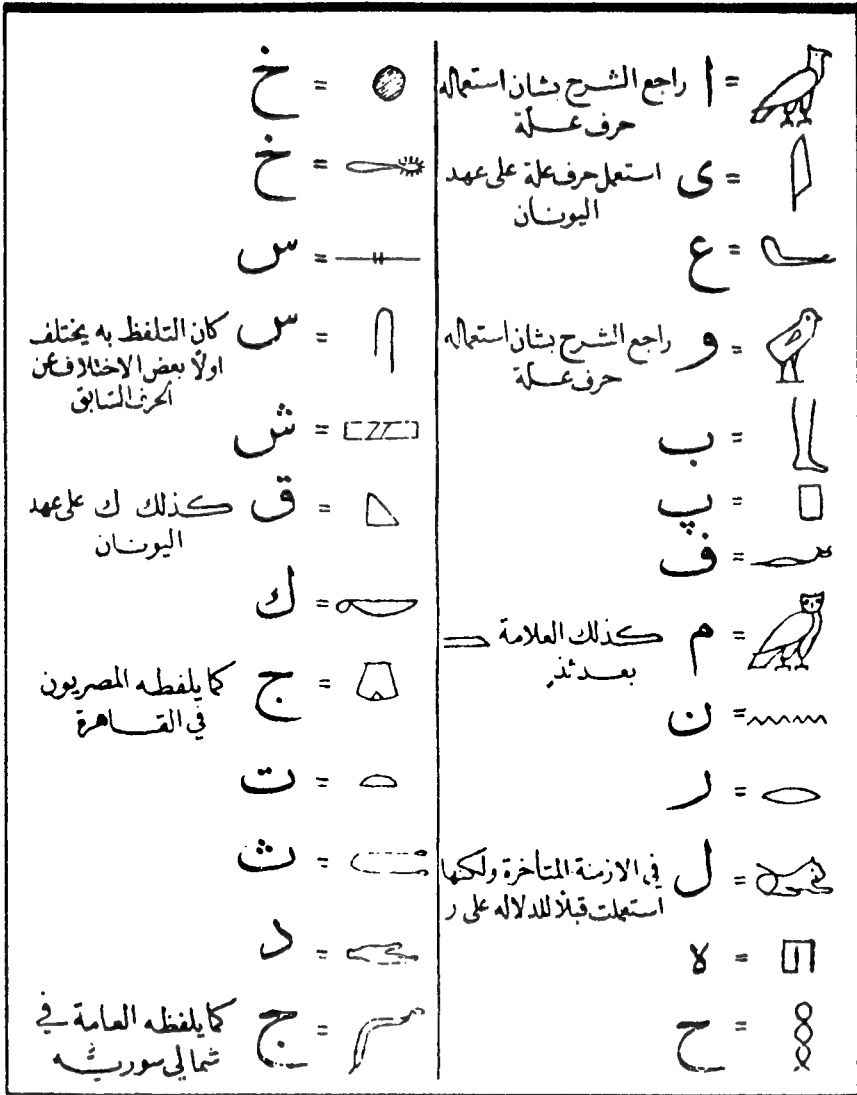 = ا راجع الشرح بشان استعماله
حرف عـلّة
= ى استعمل حرف علة على عهد
اليونـان
= ع
= و راجع الشرح بشان استعماله
حرف عـلّة
= ب
= پ
= ف
= م كـذلك العلامة
بعـدئذٍ
= ن
= ر
= ل في الازمنة المتأخرة ولكنها
استعملت قبلاً للدلاله على ر
= ه
= ح
= خ
= خ
= س
= س كان التلفظ به يختلف
اولاً بعض الاختلاف عن
الحرف السابق
= ش
= ق كـذلك ك على عهد
اليونـان
= ك
= ج كما يلفظه المصريون
في القـاهرة
= ت
= ث
= د
= ج كما يلفظه العامة في
شمالي سوريـه